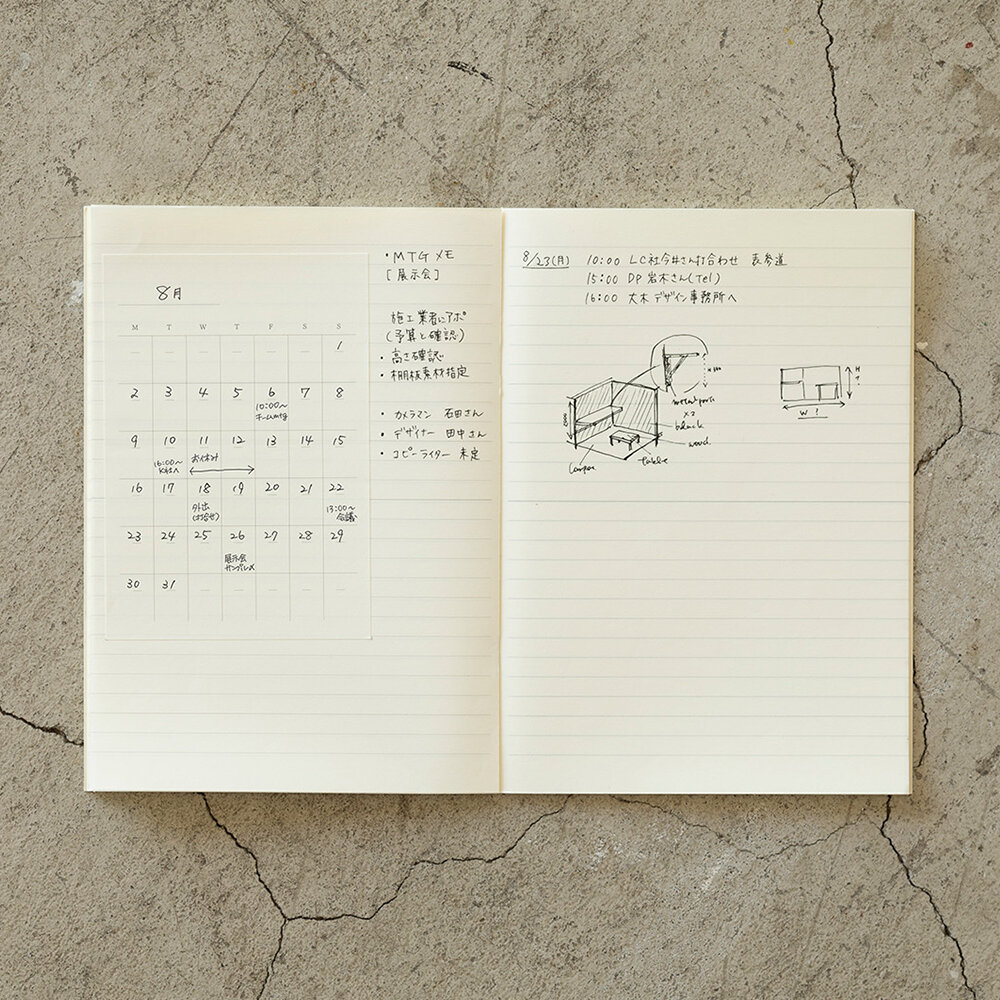 8月
M T W T F S S
1
2 3 4 5 6 7 8
10:00〜
チームmtg
9 10 11 12 13 14 15
16:00〜
K社へ
お休み
16 17 18 19 20 21 22
外出
(打合せ)
13:00〜
会議
23 24 25 26 27 28 29
展示会
サンプル〆
30 31
・MTGメモ
[展示会]
施工業者にアポ
(予算と確認)
・高さ確認
・棚板素材指定
・カメラマン 石田さん
・デザイナー 田中さん
・コピーライター 未定
8/23(月) 10:00 LC社今井さん打合わせ 表参道
15:00 DP 岩木さん(Tel)
16:00 大木デザイン事務所へ
x2
black
wood
table
H
W !